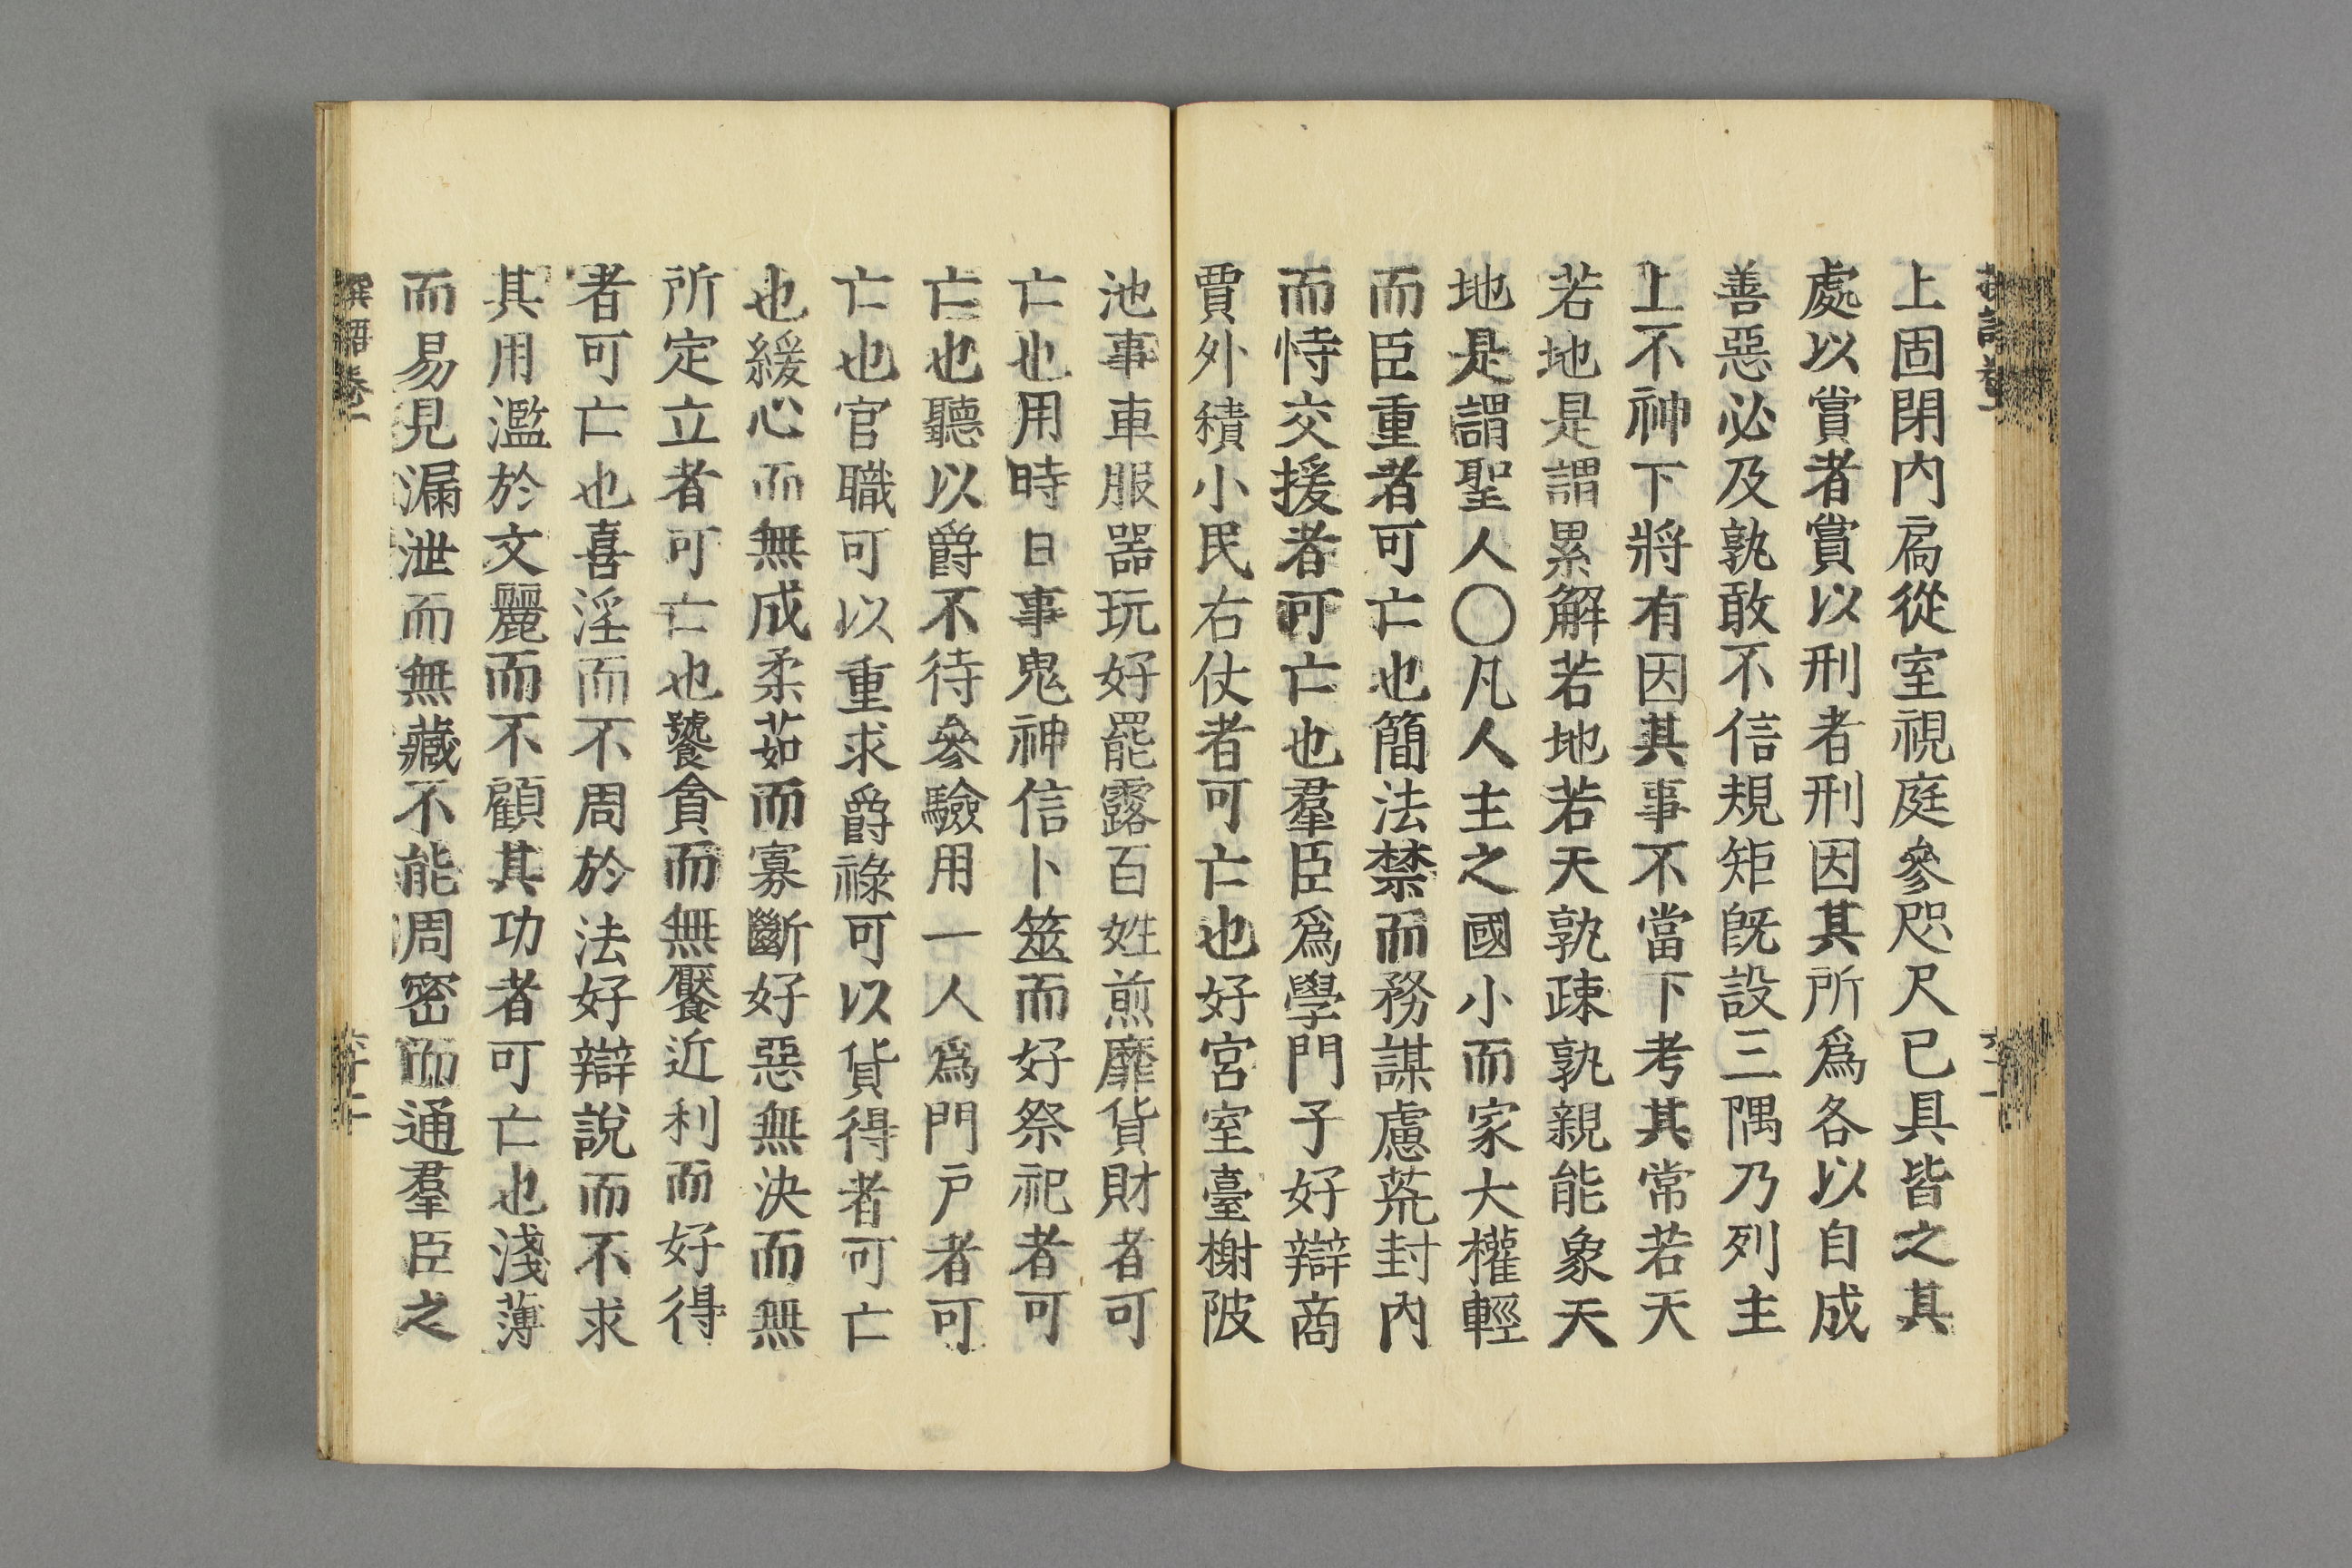 上固閉内扄從室視庭參咫尺已具皆之其
處以賞者賞以刑者刑因其所爲各以自成
善惡必及孰敢不信規矩旣設三隅乃列主
上不神下將有因其事不當下考其常若天
若地是謂累解若地若天孰疎孰親能象天
地是謂聖人〇凡人主之國小而家大權輕
而臣重者可亡也簡法禁而務謀慮荒封內
而恃交援者可亡也羣臣爲學門子好辯商
賈外積小民右仗者可亡也好宮室臺榭陂
池事車服器玩好罷露百姓煎靡貨財者可
亡也用時日事鬼神信卜筮而好祭祀者可
亡也聽以爵不待參驗用一人爲門戶者可
亡也官職可以重求爵祿可以貨得者可亡
也緩心而無成柔茹而寡斷好惡無決而無
所定立者可亡也饕貪而無饜近利而好得
者可亡也喜淫而不周於法好辯說而不求
其用濫於文麗而不顧其功者可亡也淺薄
而易見漏泄而無藏不能周密而通羣臣之